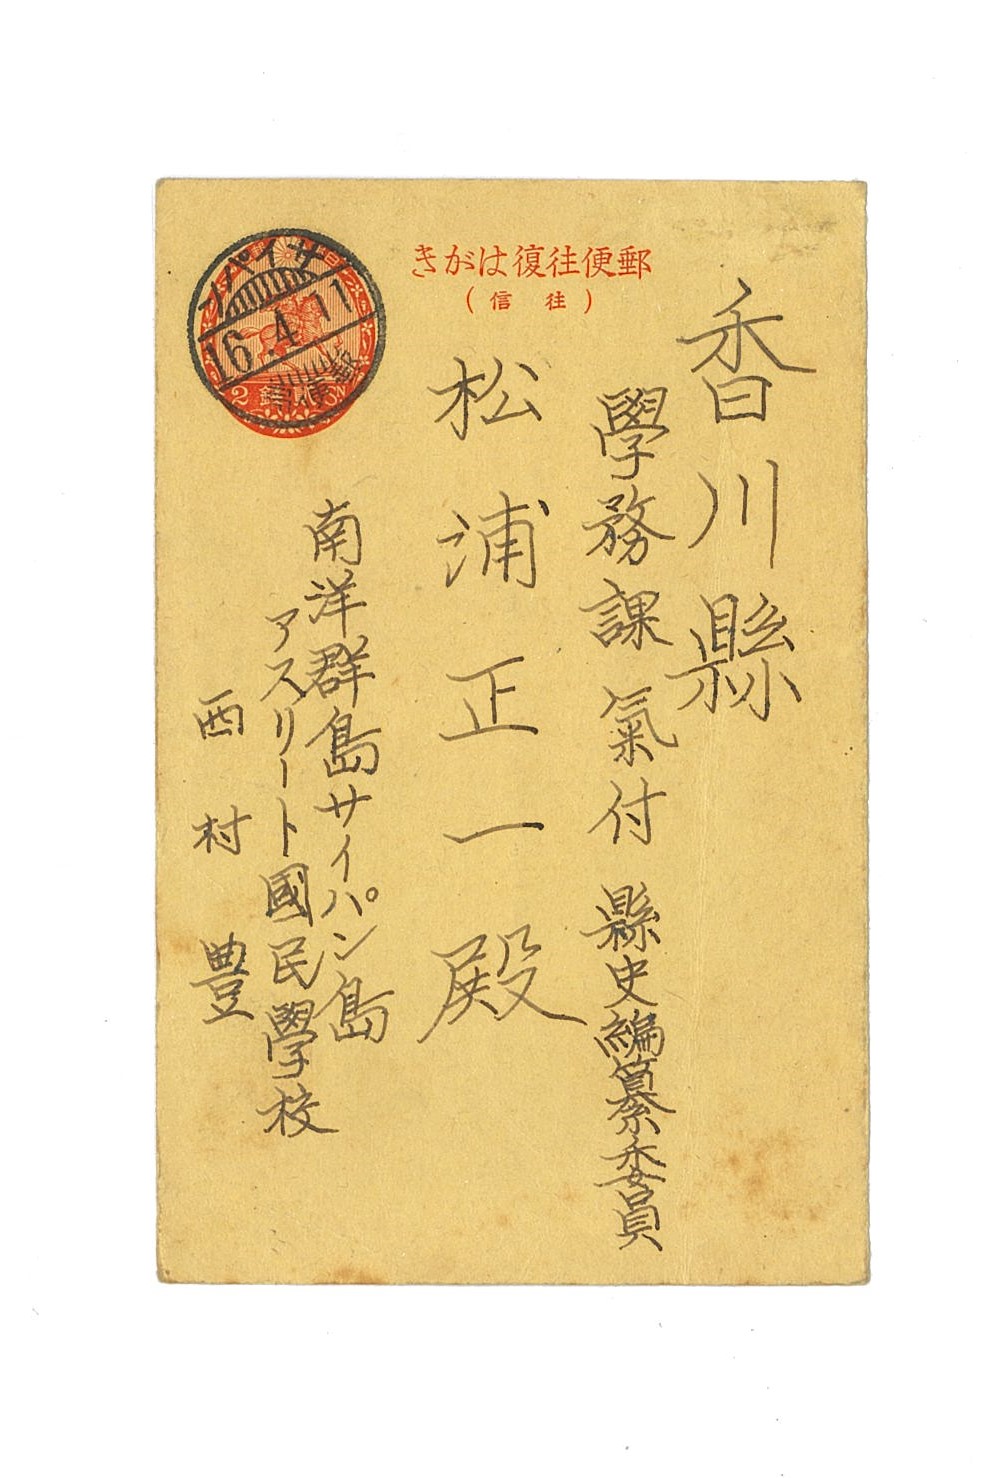 郵便往復はがき
(往信)
香川縣
學務課氣付 縣史編纂委員
松浦正一殿
南洋群島サイパン島
アスリート國民學校
西村豊
サイパン
16.4.11